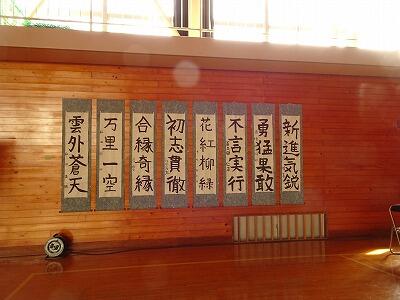 新進気鋭
勇猛果敢
不言実行
花紅柳緑
初志貫徹
合縁奇縁
万里一空
雲外蒼天